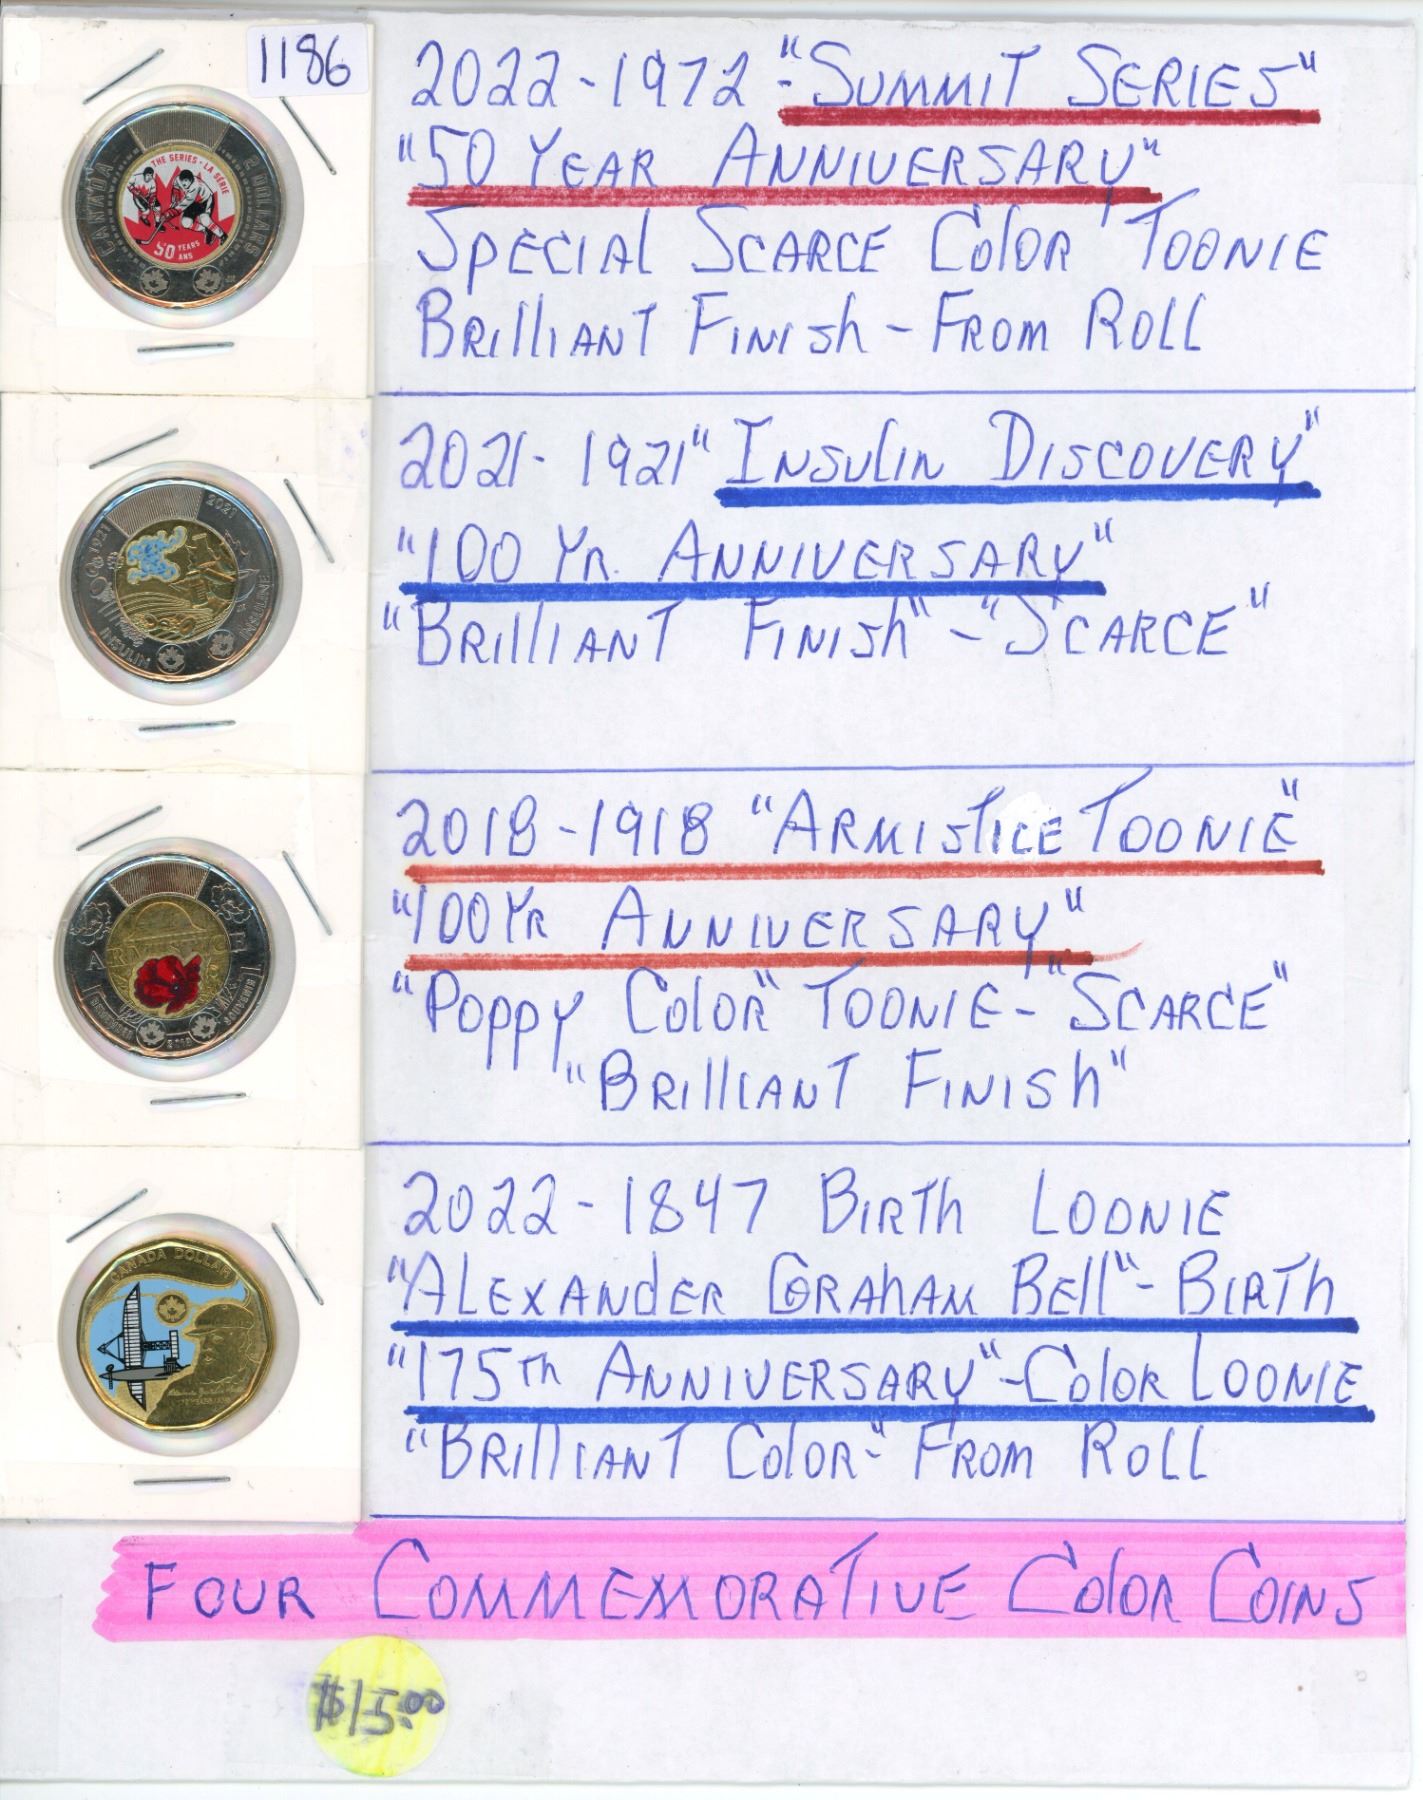 1186
2022-1972-"SUMMIT SERIES"
"50 YEAR ANNIVERSARY"
SPECIAL SCARCE COLOR TOONIE
BRILLIANT FINISH - FROM ROLL
CANADA
2 DOLLARS
THE SERIES • LA SÉRIE
50 YEARS
ANS
2021- 1921" INSULIN DISCOVERY"
"100 YR. ANNIVERSARY"
"BRILLIANT FINISH" - "SCARCE"
1921
2021
INSULIN
INSULINE
2018-1918 "ARMISTICE TOONIE"
"100 YR ANNIVERSARY"
"POPPY COLOR" TOONIE - "SCARCE"
"BRILLIANT FINISH"
ARMISTICE
2018
2022-1847 BIRTH LOONIE
"ALEXANDER GRAHAM BELL" - BIRTH
"175TH ANNIVERSARY" - COLOR LOONIE
"BRILLIANT COLOR-" FROM ROLL
CANADA DOLLAR
FOUR COMMEMORATIVE COLOR COINS
$15.00